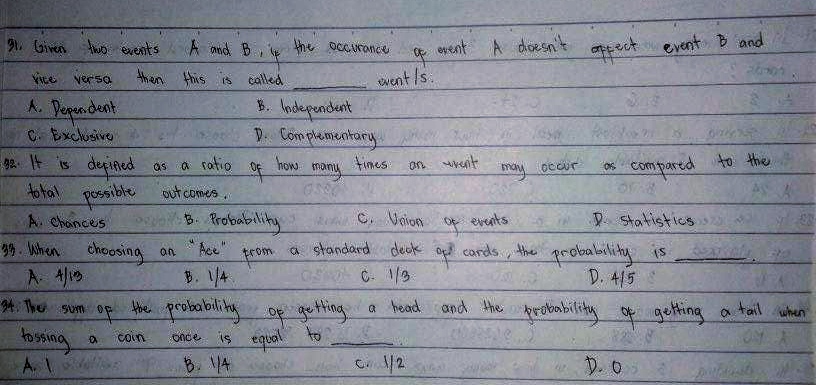 31. Given two events A and B, if the occurance of event A doesn't affect event B and
vice versa then this is called ________ event/s.
A. Dependent B. Independent
C. Exclusive D. Complementary
32. It is defined as a ratio of how many times an event may occur as compared to the
total possible outcomes.
A. Chances B. Probability C. Union of events D. Statistics
33. When choosing an "Ace" from a standard deck of cards, the probability is ________.
A. 4/13 B. 1/4 C. 1/3 D. 4/5
34. The sum of the probability of getting a head and the probability of getting a tail when
tossing a coin once is equal to ________.
A. 1 B. 1/4 C. 1/2 D. 0